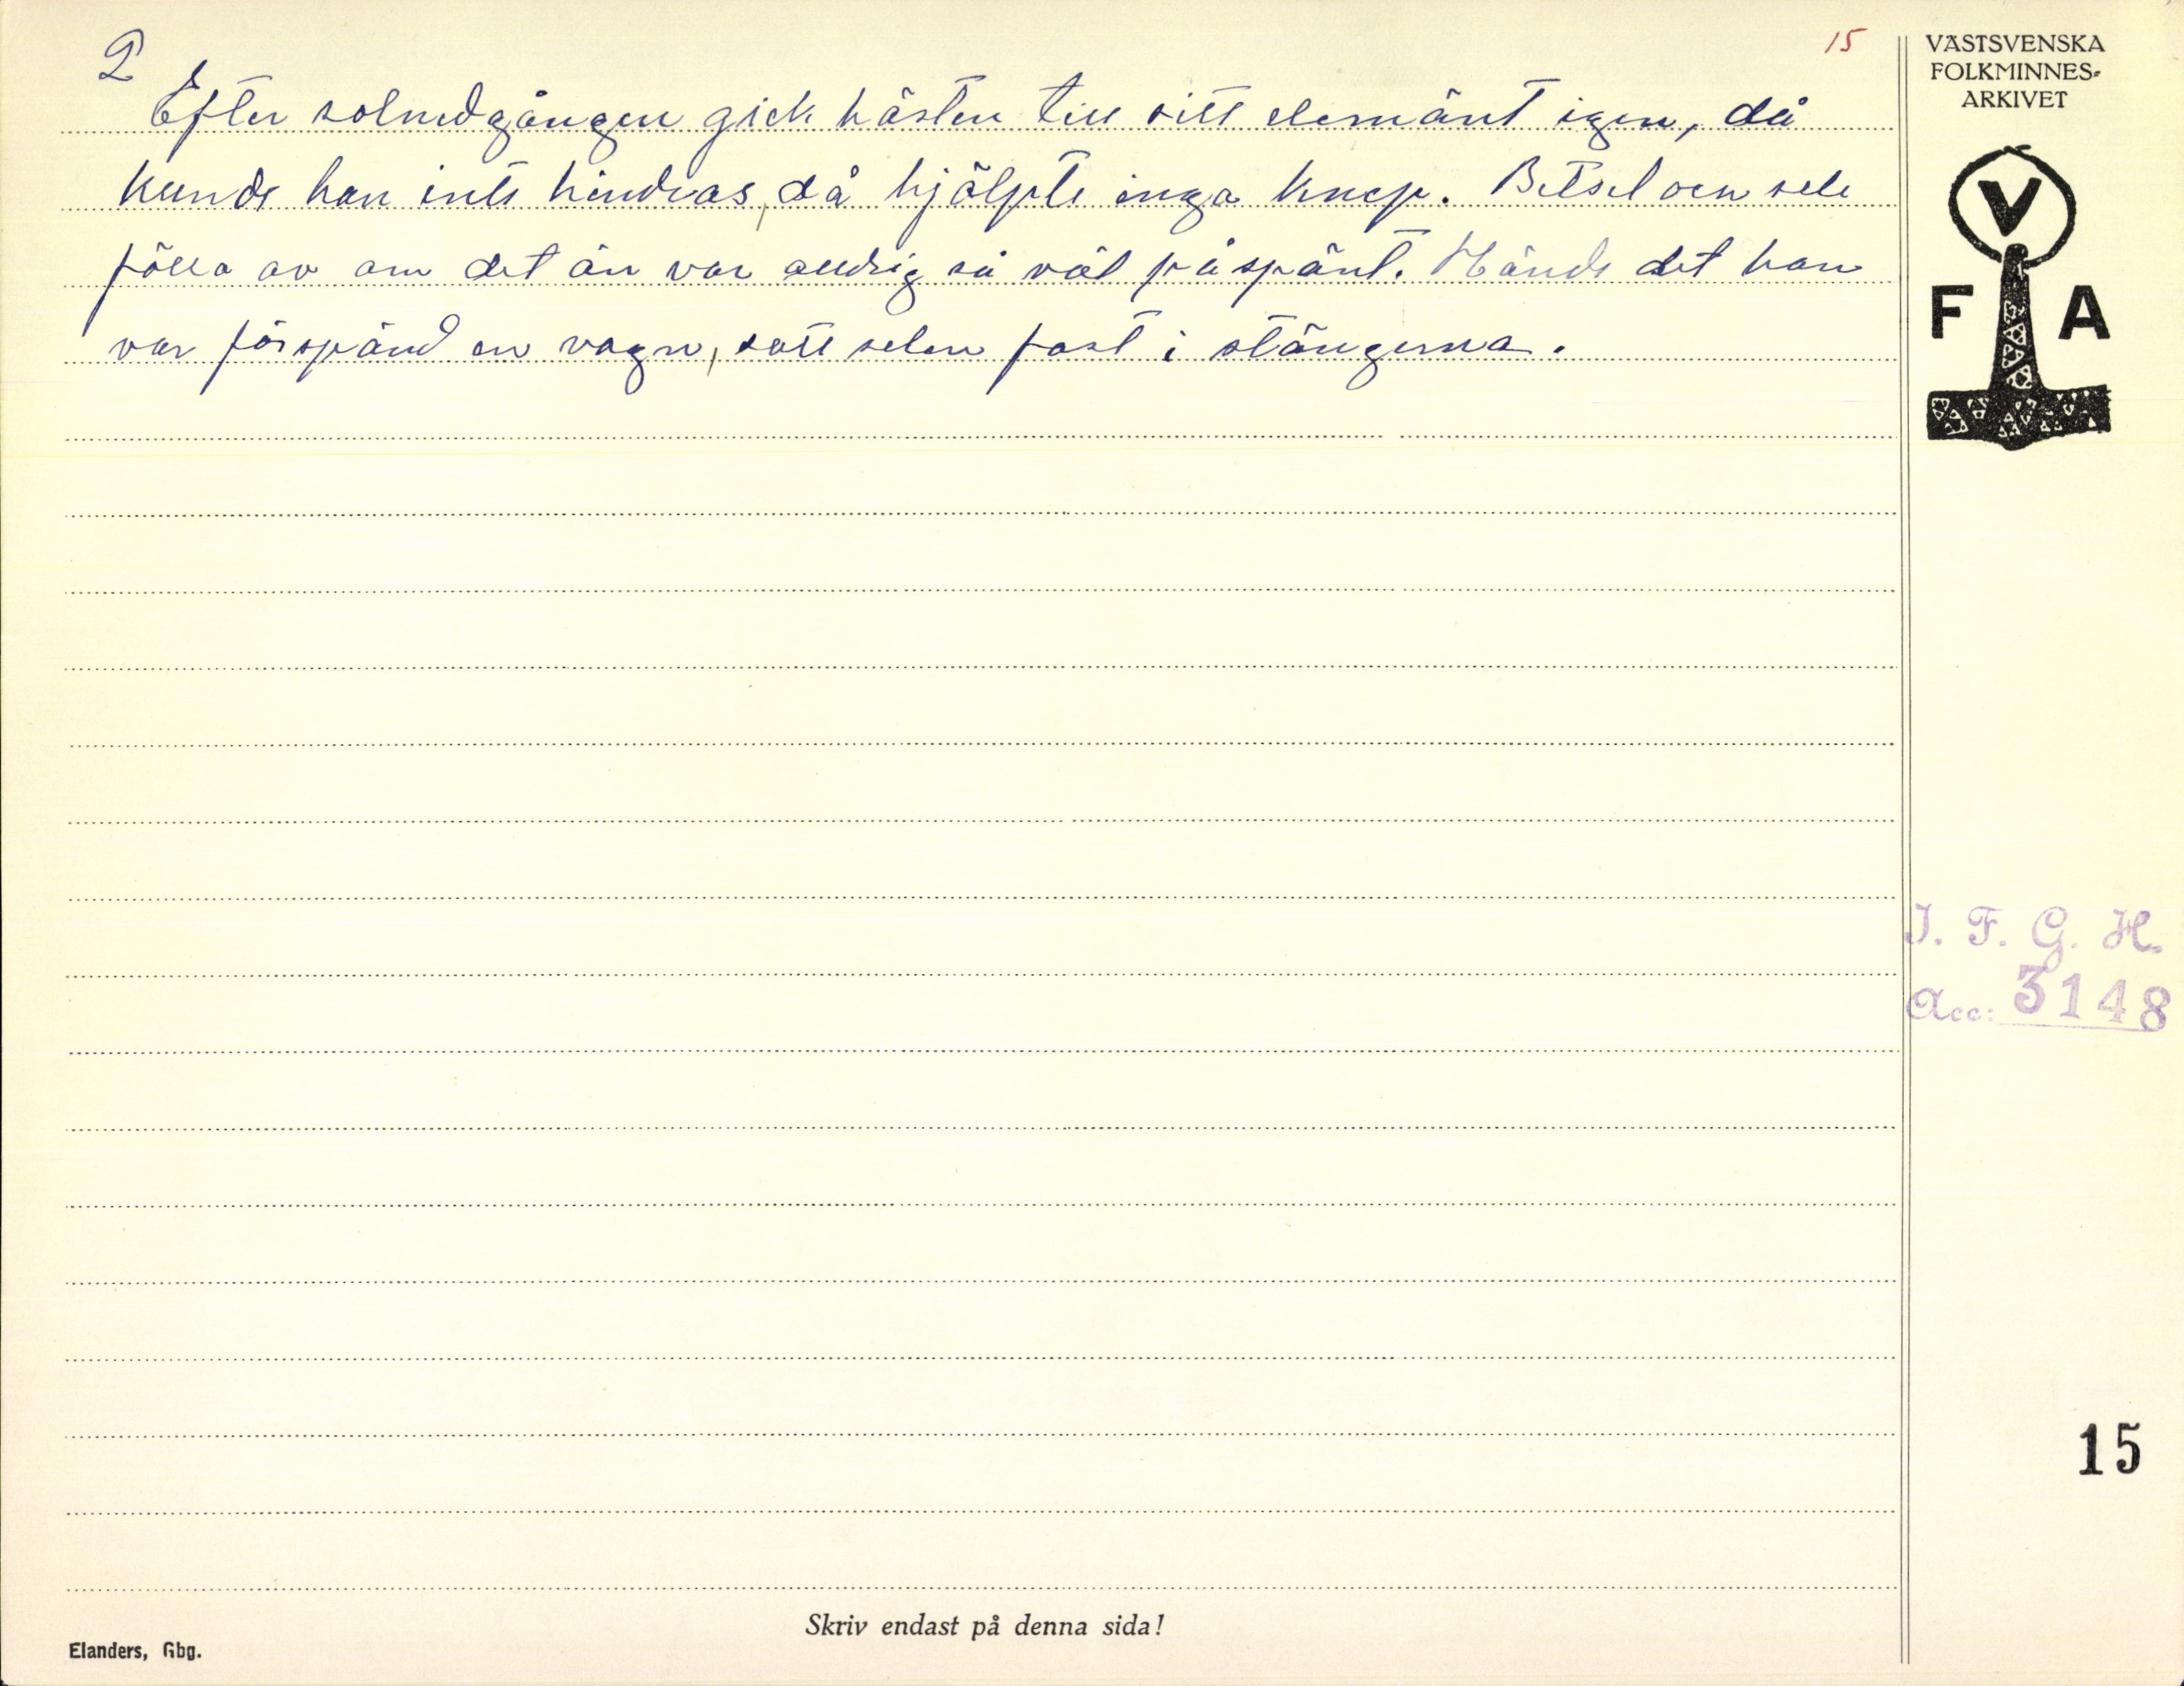 2
15
Efter solnedgången gick hästen till sitt elemänt igen, då
kunde han inte hindras, då hjälpte inga knep. Betsel ock sele
fölla av om det än var aldrig så väl påspänt. Hände det han
var förspänd en vagn, satt selen fast i stängerna.
VÄSTSVENSKA
FOLKMINNES-
ARKIVET
V
F A
I. F. G. H.
Acc: 3148
15
Skriv endast på denna sida!
Elanders, Gbg.